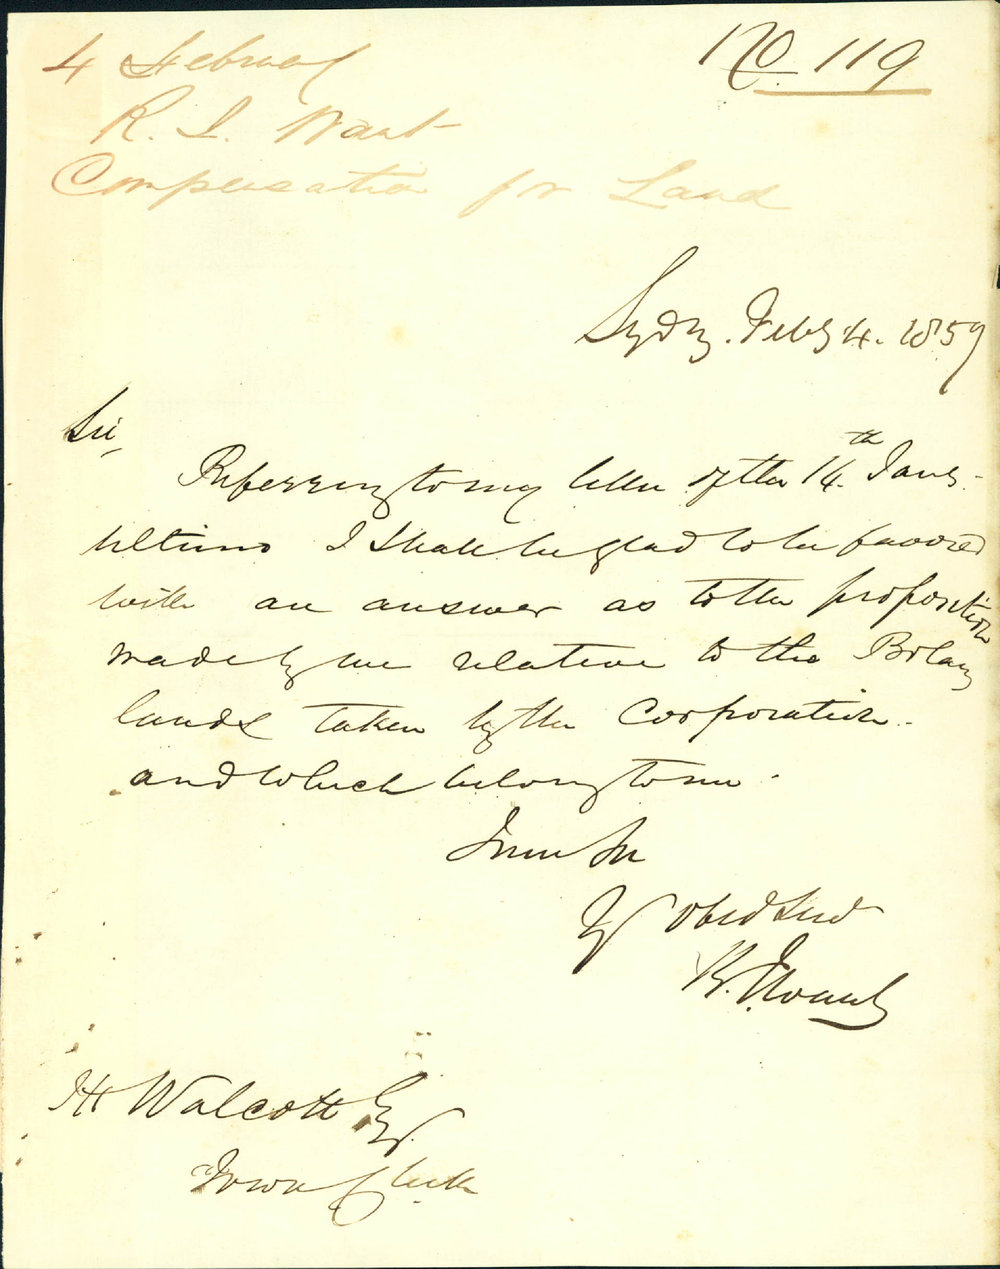 No. 119
4 February
R. J. Want
Compensation for Land
Sydny. Feby 4. 1859
Sir,
Referring to my letter of the 14th Jany.
ultimo I shall be glad to be favored
with an answer as to the proposition
made by me relative to the Botany
lands taken by the Corporation.
and which belong to me.
I am Sir
Yr obed Servt
R. J. Want
H Walcott Esq.
Town Clerk